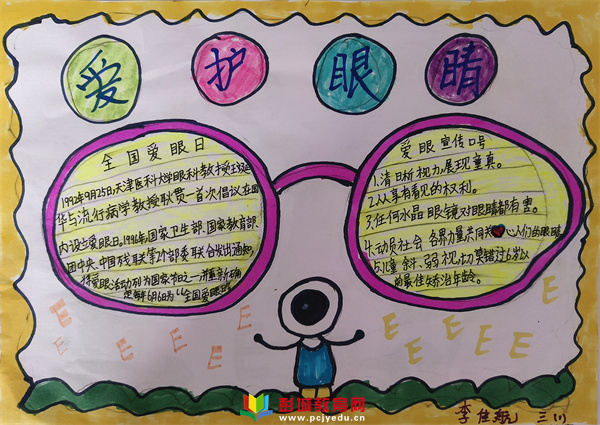 爱护眼睛
全国爱眼日
1992年9月25日,天津医科大学眼科教授王延
华与流行病学教授耿贯一首次倡议在国
内设立爱眼日。1996年,国家卫生部、国家教育部、
团中央、中国残联等12个部委联合发出通知,
将爱眼活动列为国家节日之一,并重新确
定每年6月6日为“全国爱眼日”
爱眼宣传口号
1.清晰视力,展现童真。
2.人人享有看见的权利。
3.任何水晶眼镜对眼睛都有害。
4.动员社会各界力量共同关心人们的眼睛
5.儿童斜、弱视,切莫错过6岁以
前最佳矫治年龄。
E E E E E E
E E E E E E
彭城教育网
www.pcjyedu.cn
李佳航 三